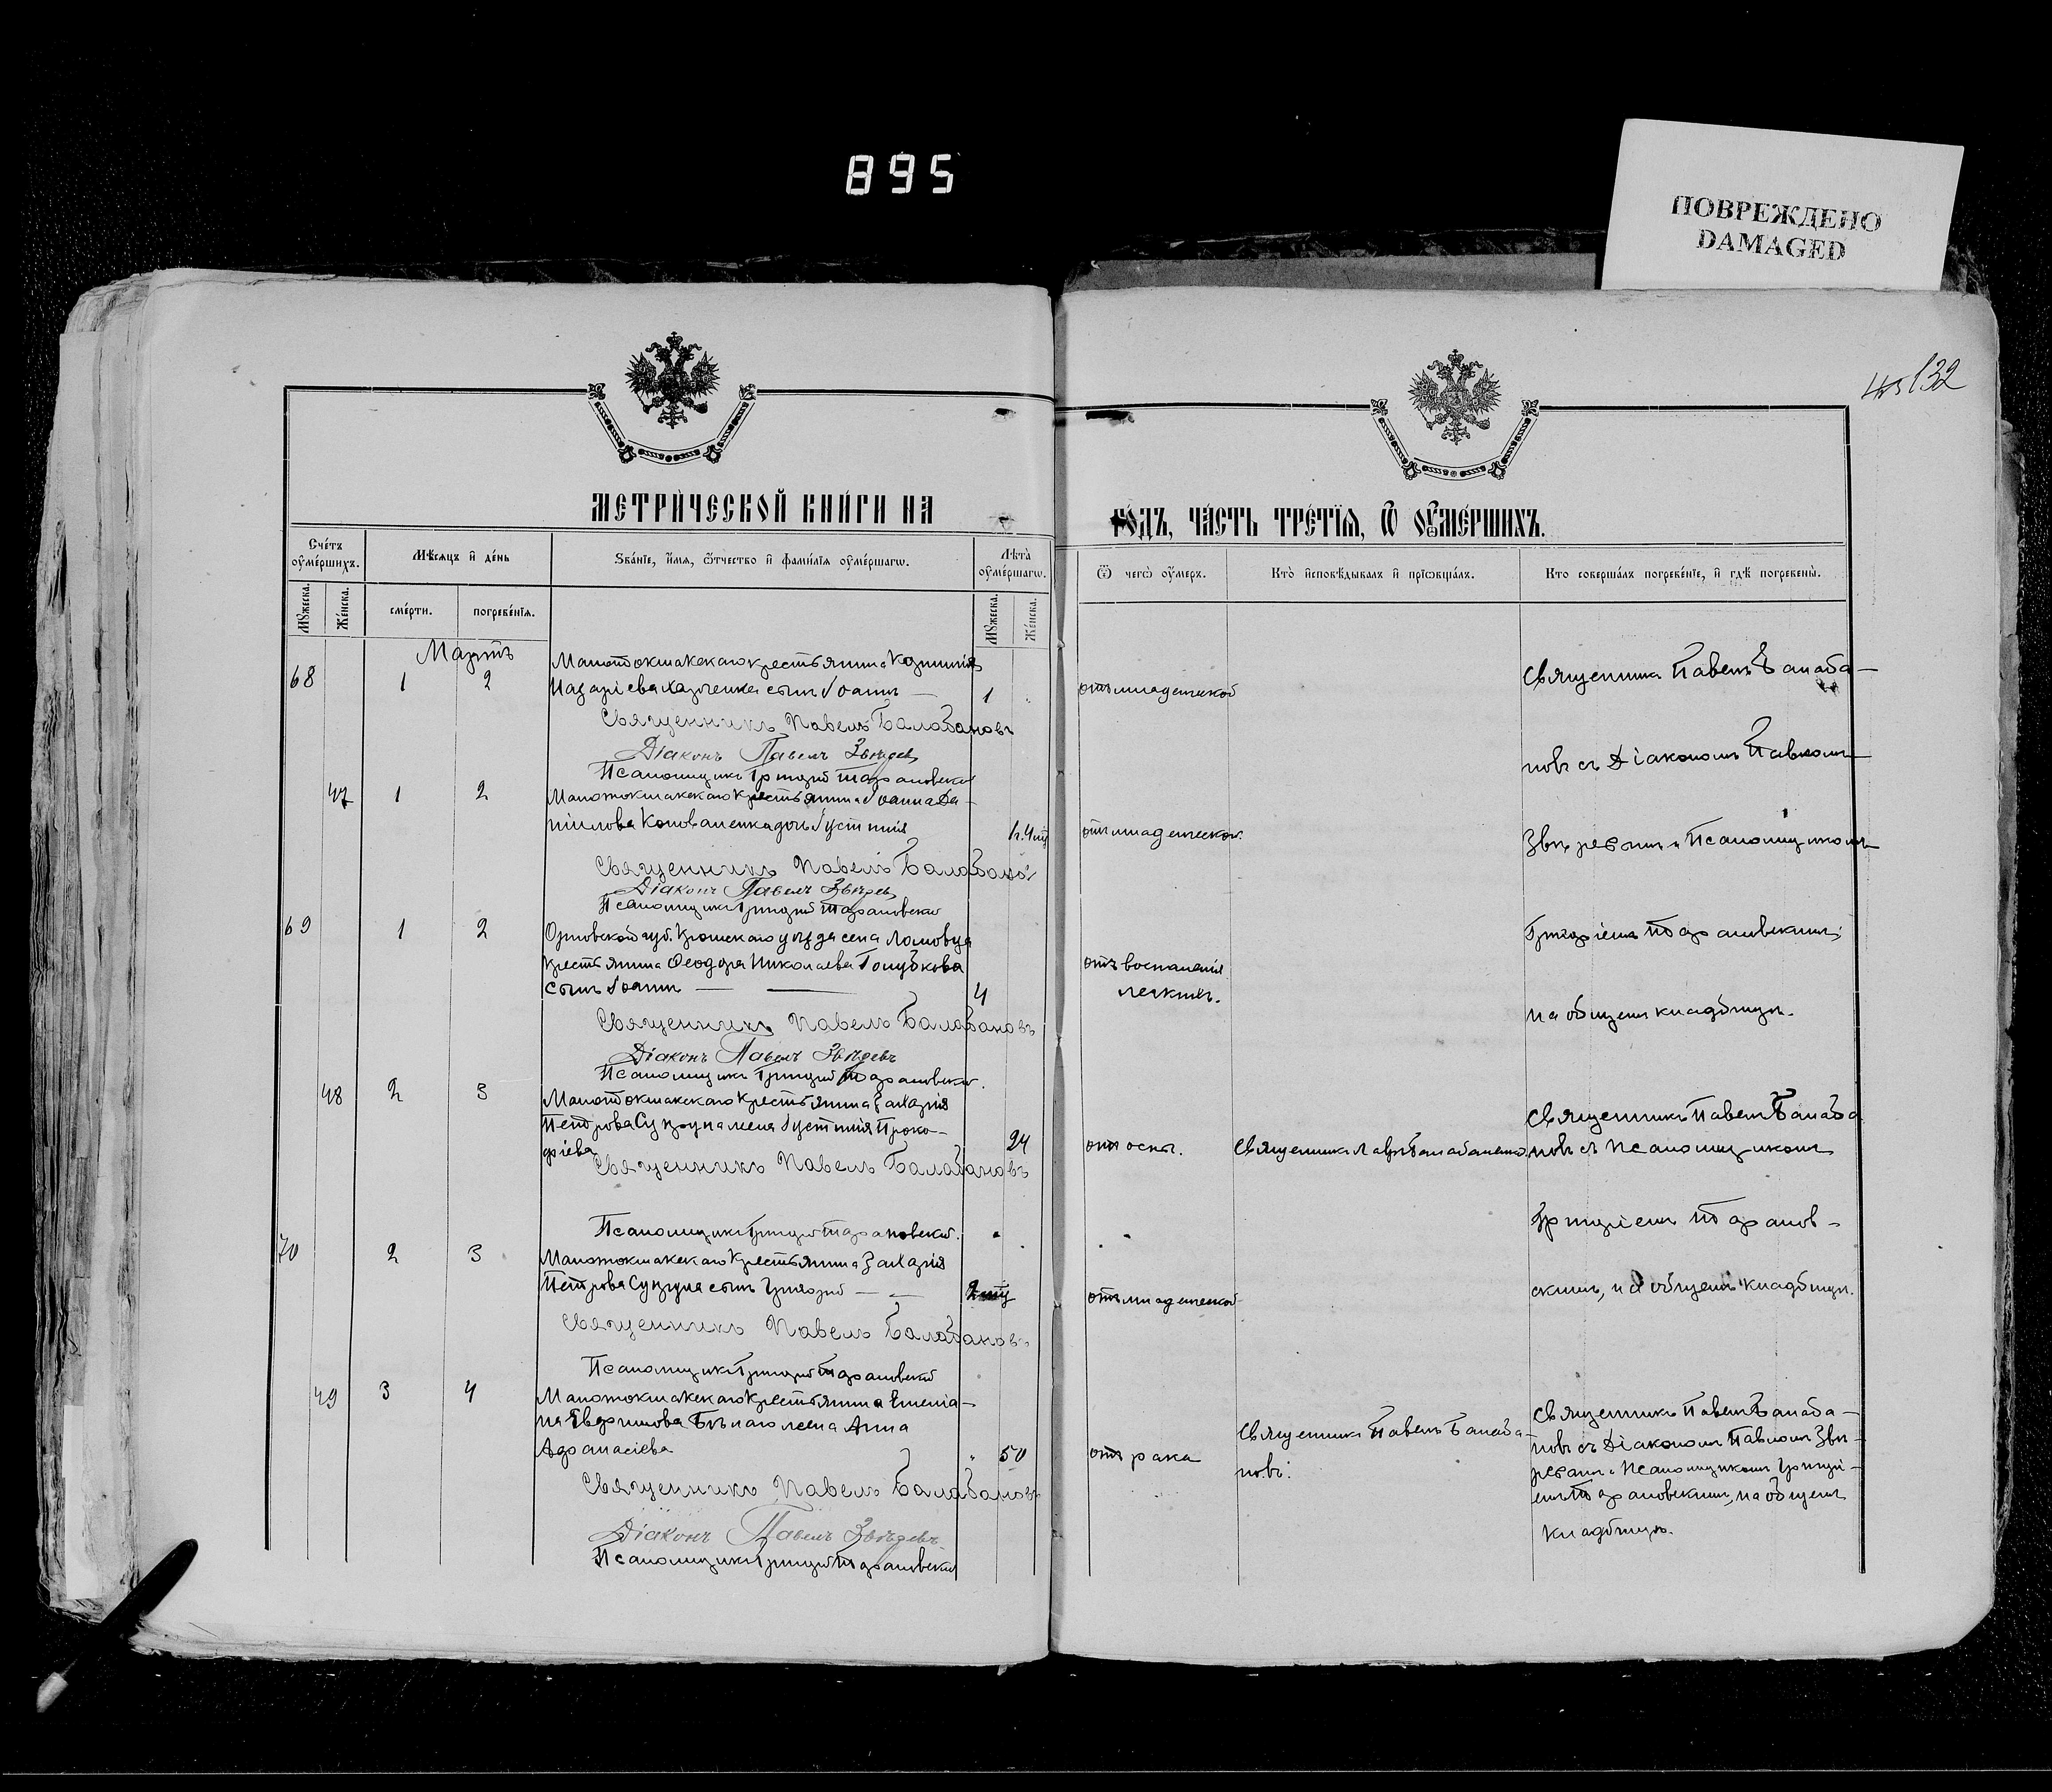 895
ПОВРЕЖДЕНО
DAMAGED
132
МЕТРИЧЕСКОЙ КНИГИ НА
ГОДЪ, ЧАСТЬ ТРЕТІЯ, Ѿ ОУМЕРШИХЪ.
Счетъ оумершихъ.
Мѣсяцъ и день
Званіе, имя, ѿтчество и фамилія оумершагѡ.
Лѣта оумершагѡ.
Ѿ чегѡ оумеръ.
Кто исповѣдывалъ и пріѡбщалъ.
Кто совершалъ погребеніе, и гдѣ погребены.
Мꙋжеска.
Женска.
смерти.
погребенія.
Мꙋжеска.
Женска.
Мартъ
68
1
2
Малотокмакскаго крестьянина
Назаріева Харченка сынъ Іоаннъ
1
отъ младенческой
Священникъ Павелъ Балаба-
Священникъ Павелъ Балабановъ
Діаконъ Павелъ Звѣревъ
новъ съ Діакономъ Павломъ
Псаломщикъ Григорій Тарановскій
47
1
2
Малотокмакскаго крестьянина Іоанна Да-
ніилова Коноваленка дочь Іустинія
1г. 4 мц
отъ младенческой.
Звѣревымъ и Псаломщикомъ
Священникъ Павелъ Балабановъ
Діаконъ Павелъ Звѣревъ
Псаломщикъ Григорій Тарановскій
69
1
2
Орловской губ. Кромскаго уѣзда села Ломовца
крестьянина Ѳеодора Николаева Голубкова
сынъ Іоаннъ
4
отъ воспаленія
легкихъ.
Григоріемъ Тарановскимъ,
на общемъ кладбищѣ.
Священникъ Павелъ Балабановъ
Діаконъ Павелъ Звѣревъ
Псаломщикъ Григорій Тарановскій.
48
2
3
Малотокмакскаго крестьянина Захарія
Петрова жена Іустинія Проко-
фіева
24
отъ оспы.
Священникъ Павелъ Балаба
новъ съ Псаломщикомъ
Священникъ Павелъ Балабановъ
Псаломщикъ Григорій Тарановскій.
Григоріемъ Таранов-
70
2
3
Малотокмакскаго крестьянина Захарія
Петрова сынъ Григорій
2 мц
отъ младенческой
скимъ, на общемъ кладбищѣ.
Священникъ Павелъ Балабановъ
Псаломщикъ Григорій Тарановскій
49
3
4
Малотокмакскаго крестьянина Емелія-
на Евфимова Бѣлаго жена Анна
Афанасіева
50
отъ рака
Священникъ Павелъ Балаба-
новъ.
Священникъ Павелъ Балаба-
новъ съ Діакономъ Павломъ Звѣ-
ревымъ и Псаломщикомъ Григорі-
емъ Тарановскимъ, на общемъ
кладбищѣ.
Священникъ Павелъ Балабановъ
Діаконъ Павелъ Звѣревъ
Псаломщикъ Григорій Тарановскій